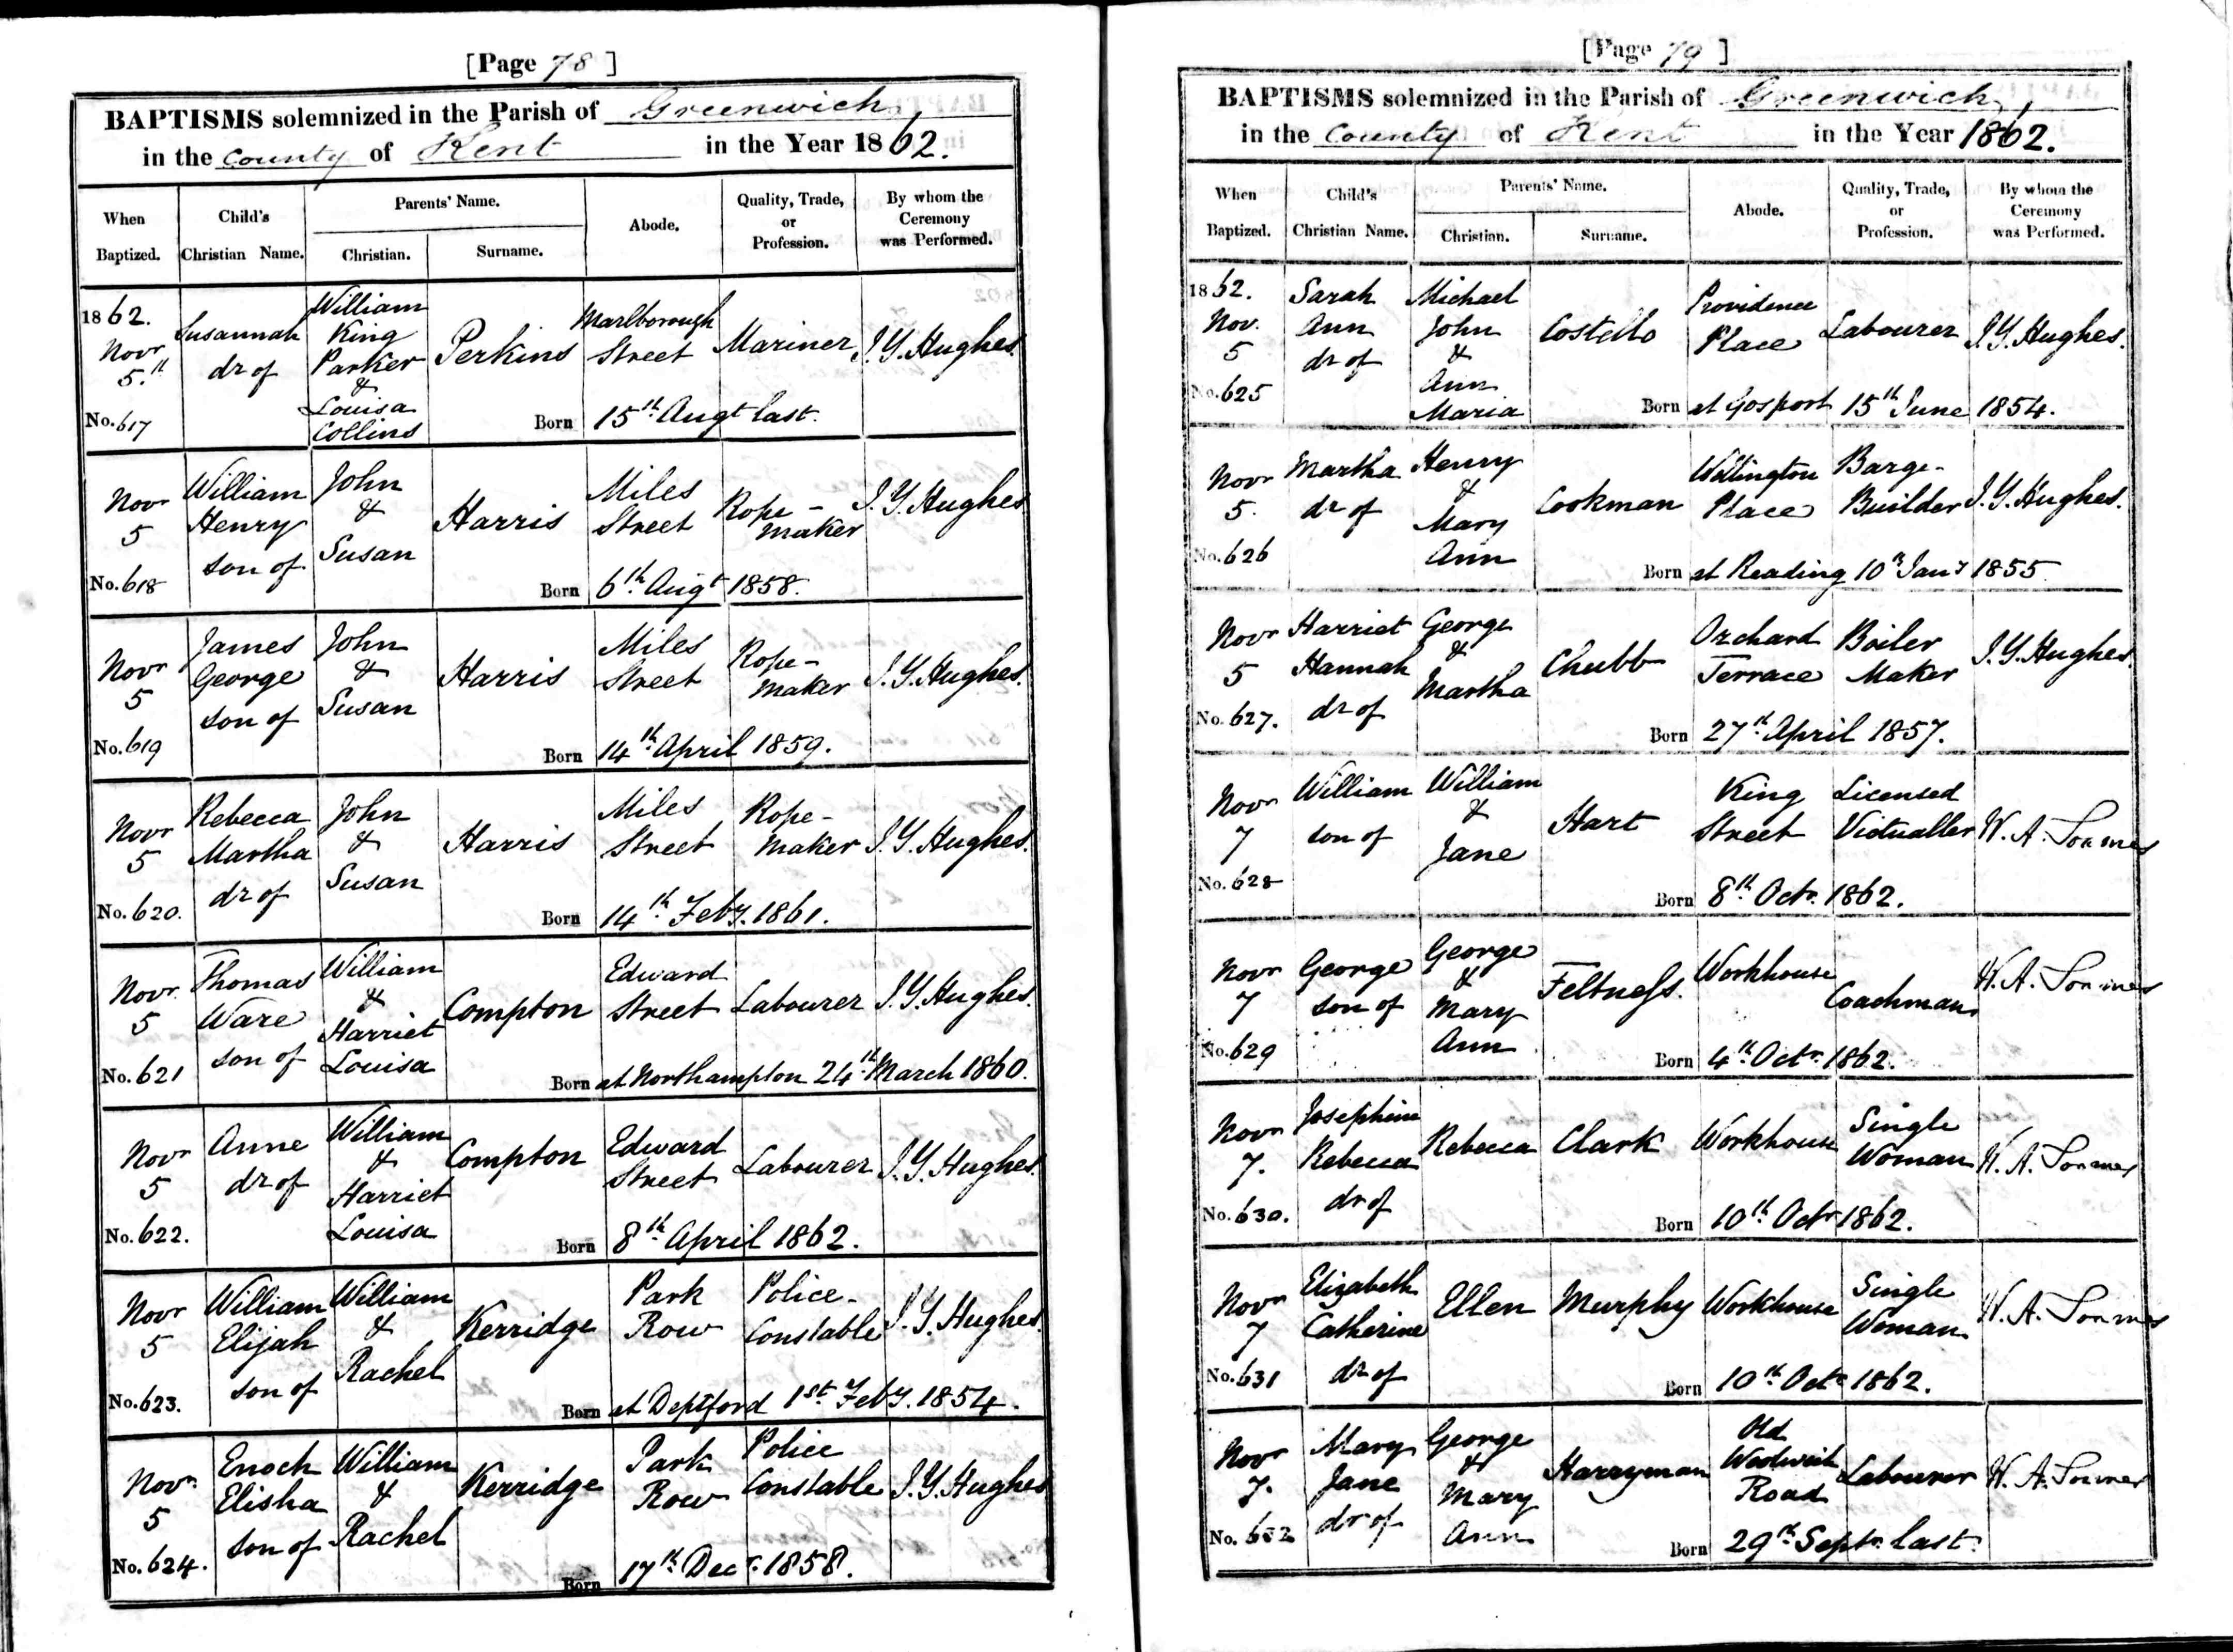 [Page 78]
BAPTISMS solemnized in the Parish of Greenwich
in the County of Kent in the Year 1862.
When Baptized. Child's Christian Name. Parents' Name. Christian. Surname. Abode. Quality, Trade, or Profession. By whom the Ceremony was Performed.
1862. Novr 5.th No. 617 Susannah dr of William King Parker & Louisa Collins Perkins Marlborough Street Mariner J.Y. Hughes.
Born 15th Augt last.
Novr 5 No. 618 William Henry son of John & Susan Harris Miles Street Rope-maker J.Y. Hughes
Born 6th Augt 1858.
Novr 5 No. 619 James George son of John & Susan Harris Miles Street Rope-maker J.Y. Hughes.
Born 14th April 1859.
Novr 5 No. 620. Rebecca Martha dr of John & Susan Harris Miles Street Rope-maker J.Y. Hughes.
Born 14th Feby. 1861.
Novr 5 No. 621 Thomas Ware son of William & Harriet Louisa Compton Edward Street Labourer J.Y. Hughes.
Born at Northampton 24th March 1860.
Novr 5 No. 622. Anne dr of William & Harriet Louisa Compton Edward Street Labourer J.Y. Hughes.
Born 8th April 1862.
Novr 5 No. 623. William Elijah son of William & Rachel Kerridge Park Row Police-Constable J.Y. Hughes.
Born at Deptford 1st Feby. 1854.
Novr 5 No. 624. Enoch Elisha son of William & Rachel Kerridge Park Row Police Constable J.Y. Hughes
Born 17th Decr. 1858.
[Page 79]
BAPTISMS solemnized in the Parish of Greenwich,
in the County of Kent in the Year 1862.
When Baptized. Child's Christian Name. Parents' Name. Christian. Surname. Abode. Quality, Trade, or Profession. By whom the Ceremony was Performed.
1862. Nov. 5 No. 625 Sarah Ann dr of Michael John & Ann Maria Costello Providence Place Labourer J.Y. Hughes.
Born at Gosport 15th June 1854.
Novr 5. No. 626 Martha dr of Henry & Mary Ann Cookman Wellington Place Barge-Builder J.Y. Hughes.
Born at Reading 10th Jany 1855
Novr 5 No. 627. Harriet Hannah dr of George & Martha Chubb Orchard Terrace Boiler Maker J.Y. Hughes.
Born 27th April 1857.
Novr 7 No. 628 William son of William & Jane Hart King Street Licensed Victualler W. A.
Born 8th Octr. 1862.
Novr 7 No. 629 George son of George & Mary Ann Feltness. Workhouse Coachman W. A.
Born 4th Octr. 1862.
Novr 7. No. 630. Josephine Rebecca dr of Rebecca Clark Workhouse Single Woman W. A.
Born 10th Octr 1862.
Novr 7 No. 631 Elizabeth Catherine dr of Ellen Murphy Workhouse Single Woman W. A.
Born 10th Octr 1862.
Novr 7. No. 632 Mary Jane dr of George & Mary Ann Harryman Old Woolwich Road Labourer W. A.
Born 29th Septr. last.